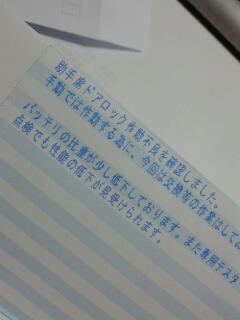 助手席ドアロック作動不良を確認しました。
手動では作動する為に、今回は交換等の作業はしてお
バッテリの比重が少し低下しております。また専用テスタ
点検でも性能の低下が見受けられます。